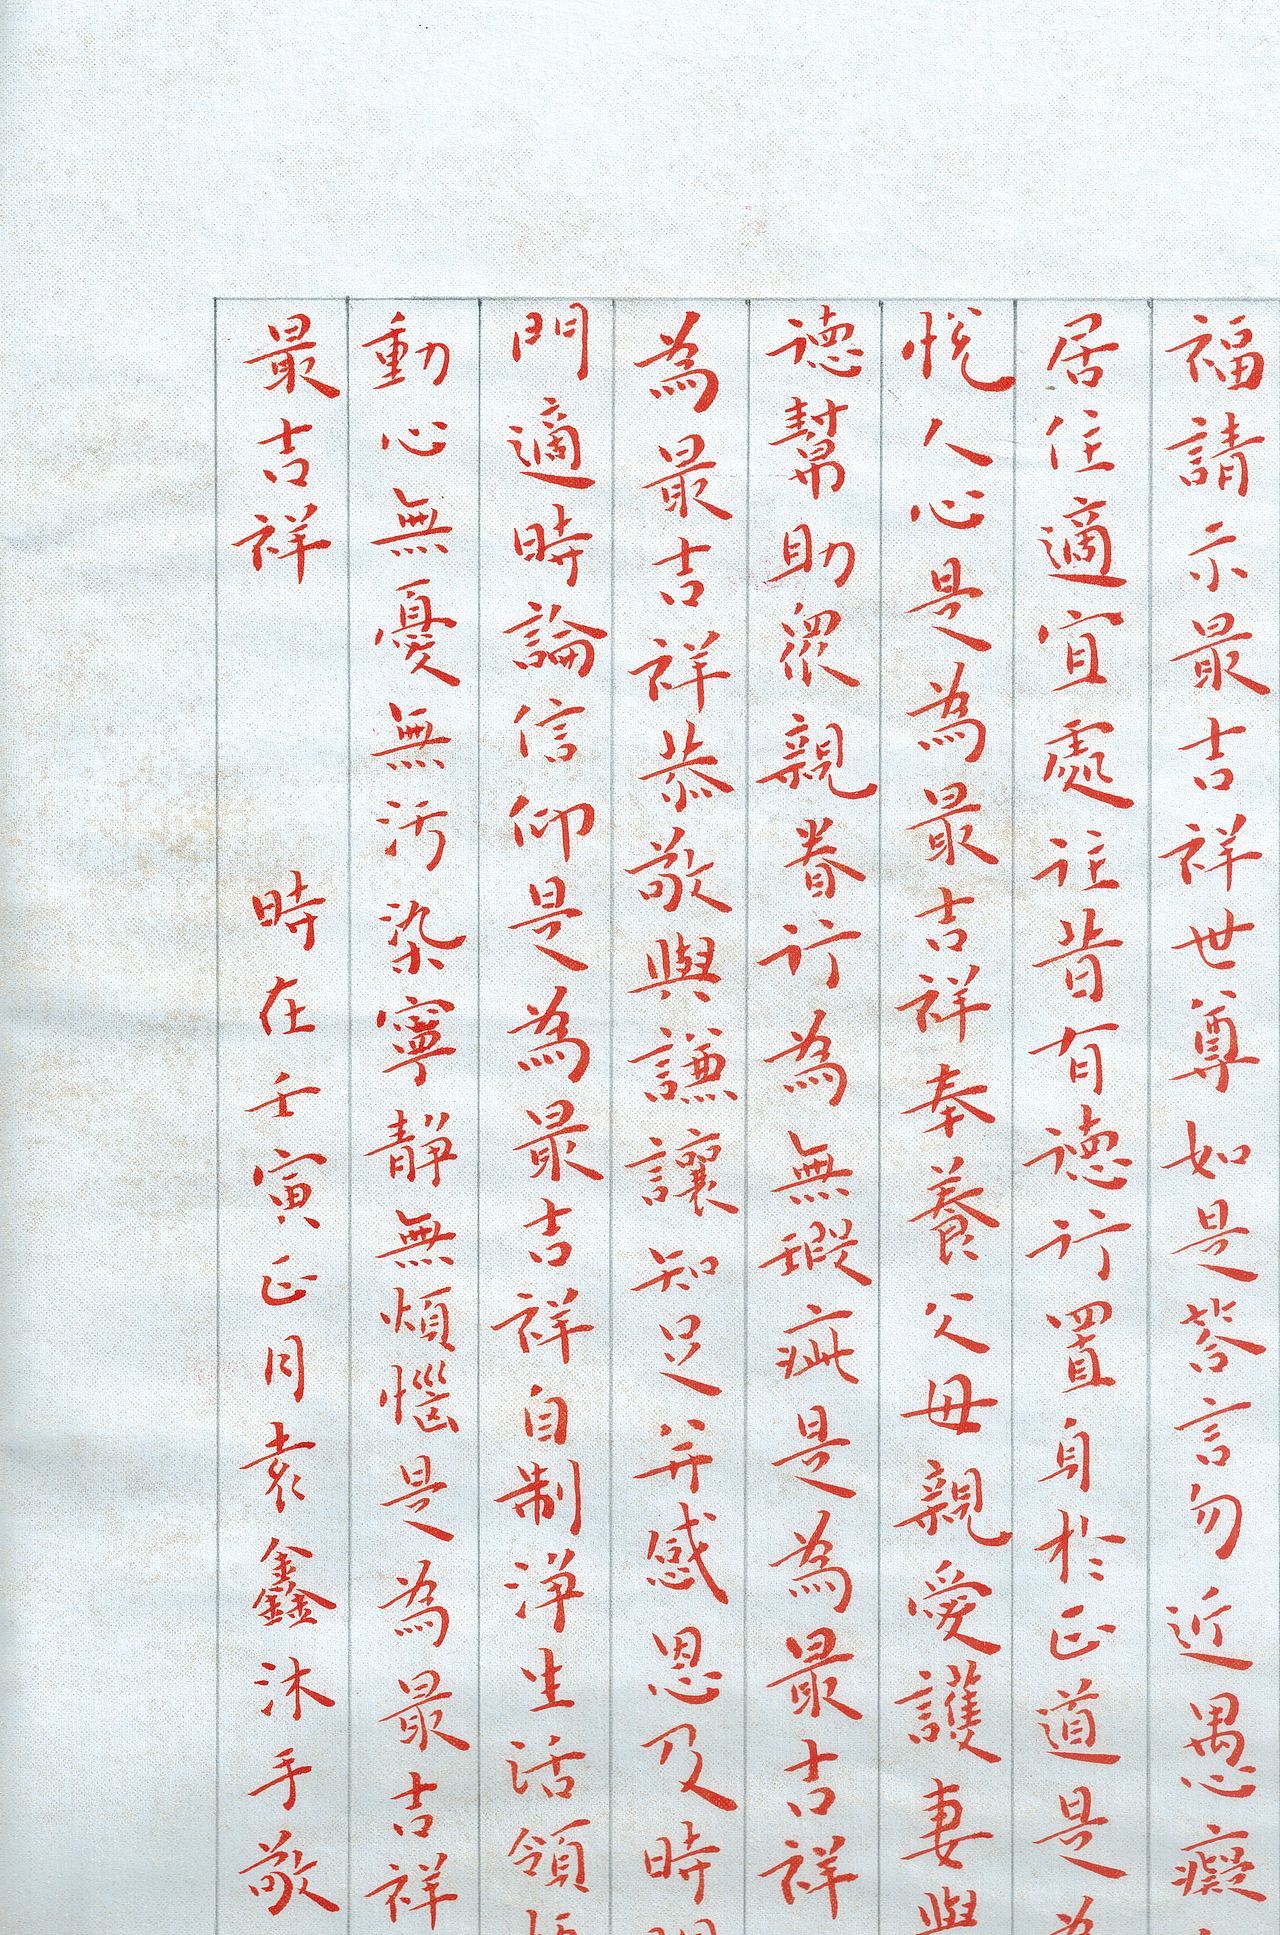 福請示最吉祥世尊如是答言勿近愚心癡
居住適宜處往昔有德行置身於正道是為
悅人心是為最吉祥奉養父母親愛護妻與
德幫助眾親眷行為無瑕疵是為最吉祥
為最吉祥恭敬與謙讓知足并感恩及時
門適時論信仰是為最吉祥自制淨生活領
動心無憂無污染寧靜無煩惱是為最吉祥
最吉祥 時在壬寅正月袁鑫沐手敬